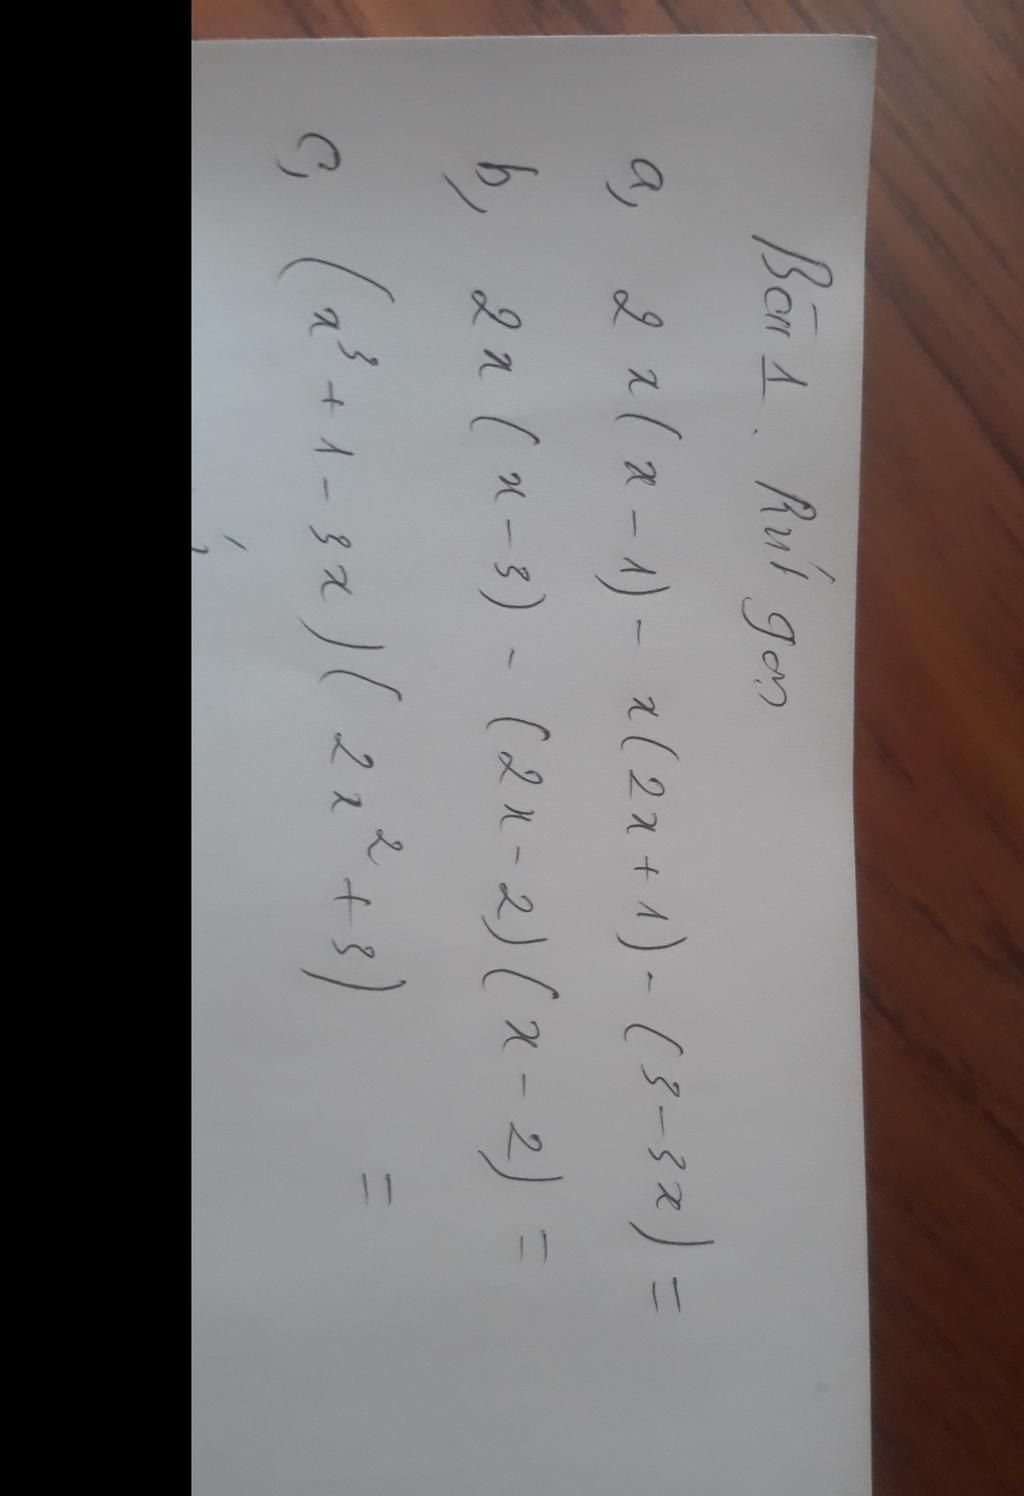 Bài 1. Rút gọn
a, 2x(x-1) - x(2x+1) - (3-3x) =
b, 2x(x-3) - (2x-2)(x-2) =
c, (x³+1-3x)(2x²+3) =